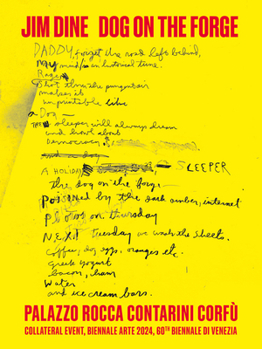 JIM DINE DOG ON THE FORGE
DADDY, forget the road left behind,
MY mind is an historical time.
Rage
shot thru the
makes it
un printable
a Dog —
THE sleeper will always dream
and howl about
Democracy
A HOLIDAY SLEEPER
the dog on the forge —
POISONED by the dark amber, internet
Photos on thursday
NEXT Tuesday we wash the sheets.
Coffee, dog eggs, oranges etc.
Greek Yogurt
bacon, ham
Water
and ice cream bars.
PALAZZO ROCCA CONTARINI CORFÙ
COLLATERAL EVENT, BIENNALE ARTE 2024, 60TH BIENNALE DI VENEZIA